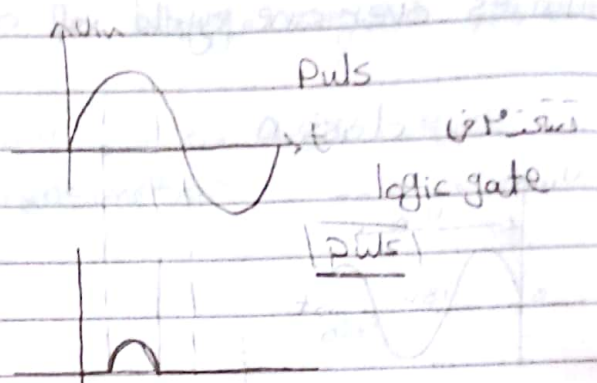 Vin
Puls
t
logic gate
puls